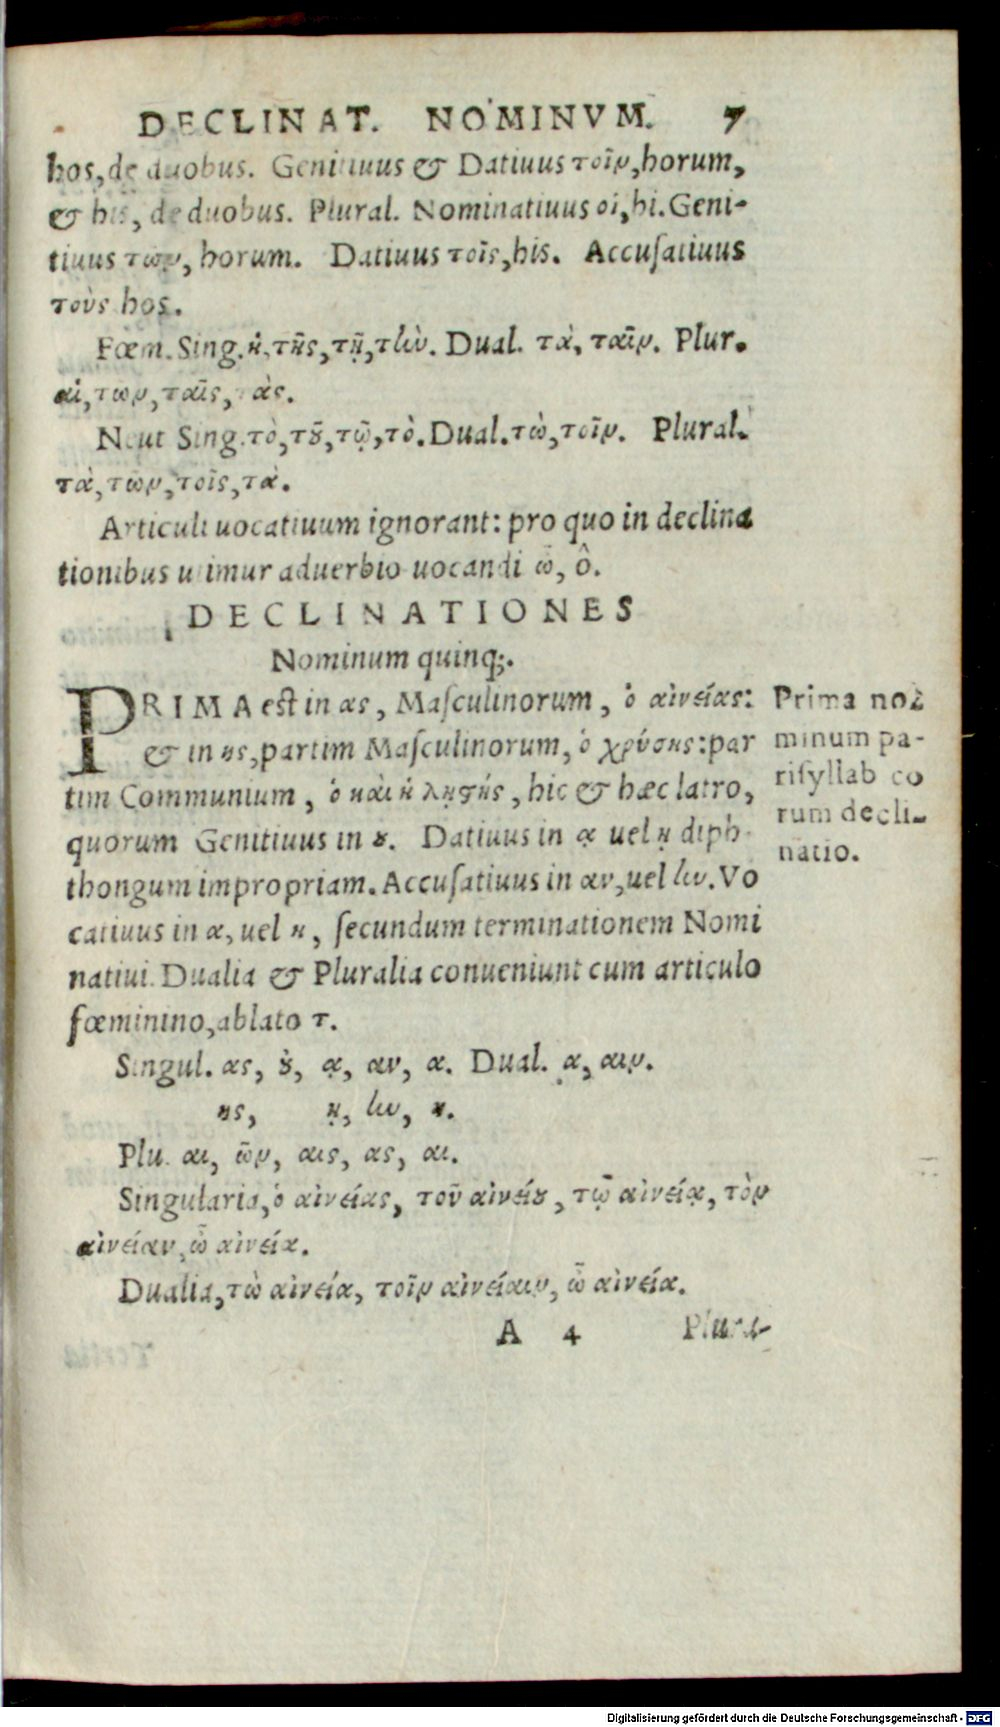 DECLINAT. NOMINVM. 7
hos, de duobus. Genitiuus & Datiuus τοῖν, horum,
& his, de duobus. Plural. Nominatiuus οἱ, hi. Geni-
tiuus των, horum. Datiuus τοῖς, his. Accuſatiuus
τοὺς hos.
Fœm. Sing. ἡ, τῆς, τῇ, τὴν. Dual. τὰ, ταῖν. Plur.
αἱ, των, ταῖς, τὰς.
Neut Sing. τὸ, τȣ͂, τῷ, τὸ. Dual. τὼ, τοῖν. Plural.
τὰ, τῶν, τοῖς, τὰ.
Articuli uocatiuum ignorant: pro quo in declina
tionibus utimur aduerbio uocandi ὦ, ô.
DECLINATIONES
Nominum quinq;.
PRIMA est in ας, Maſculinorum, ὁ αἰνείας:
& in ης, partim Maſculinorum, ὁ χρύσης: par
tim Communium, ὁ καὶ ἡ ληϛής, hic & hæc latro,
quorum Genitiuus in ȣ. Datiuus in ᾳ uel ῃ diph
thongum impropriam. Accuſatiuus in αν, uel ην. Vo
catiuus in α, uel η, ſecundum terminationem Nomi
natiui. Dualia & Pluralia conueniunt cum articulo
fœminino, ablato τ.
Singul. ας, ȣ, ᾳ, αν, α. Dual. α, αιν.
ης, ῃ, ην, η.
Plu. αι, ῶν, αις, ας, αι.
Singularia, ὁ αἰνείας, τοῦ αἰνείȣ, τῷ αἰνείᾳ, τὸν
αἰνείαν, ὦ αἰνεία.
Dualia, τὼ αἰνεία, τοῖν αἰνείαιν, ὦ αἰνεία.
A 4 Plura-
Prima no⸗
minum pa-
riſyllab co
rum decli-
natio.
Digitalisierung gefördert durch die Deutsche Forschungsgemeinschaft - DFG